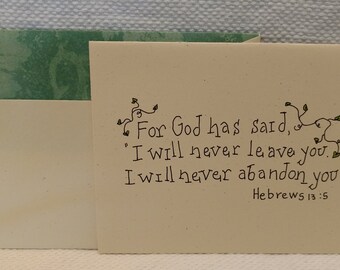 For God has said,
"I will never leave you.
I will never abandon you
Hebrews 13:5